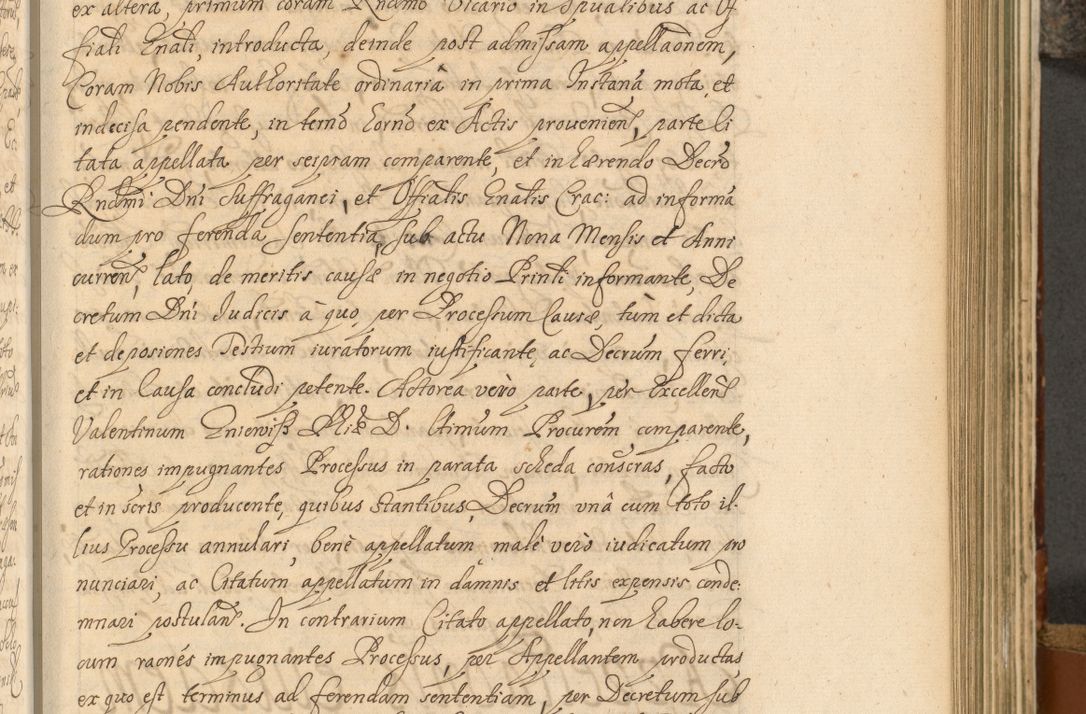 ex altera, primum coram Rndmo Vicario in Spualibus ac Of
fiali Gnali, introducta, deinde post admissam appellaonem,
Coram Nobis Authoritate ordinaria in prima Instana mota, et
indecisa pendente, in termo horno ex Actis provenien, parte Ci
tata appellata per seipsam comparente, et inhærendo Decro
Rndmi Dni Suffraganei, et Offialis Gnalis Crac: ad informa
dum pro ferenda sententia, sub actu Nona Mensis et Anni
curren, lato, de meritis causæ in negotio Prinli informante, De
cretum Dni Iudicis à quo, per Processum Causæ, tùm et dicta
et deposiones Testium iuratorum iustificante, ac Decrum ferri,
et in Causa concludi petente. Actorea vero parte, per Excellen
Valentinum Gniewisz Phiæ D. Ctimum Procurem comparente,
rationes impugnantes Processus in parata scheda conscras, facto
et in scris producente, quibus stantibus, Decrum unà cum toto il-
lius Processu annulari, benè appellatum malè vero iudicatum pro
nunciari, ac Citatum, appellatum in damnis et litis expensis conde:
mnari postulan. In contrarium Citato appellato, non habere lo-
cum raones impugnantes Processus, per Appellantem productas
ex quo est terminus ad ferendam sententiam, per Decretum sub